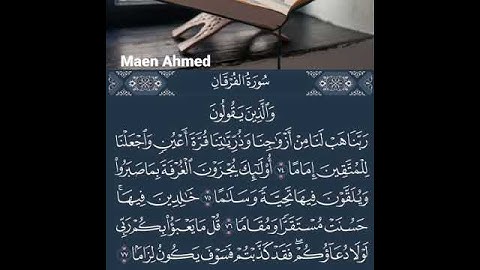 Maen Ahmed
سُورَةُ الفُرْقَانِ
وَالَّذِينَ يَقُولُونَ
رَبَّنَا هَبْ لَنَا مِنْ أَزْوَاجِنَا وَذُرِّيَّاتِنَا قُرَّةَ أَعْيُنٍ وَاجْعَلْنَا
لِلْمُتَّقِينَ إِمَامًا ٧٤ أُوْلَـٰٓئِكَ يُجْزَوْنَ الْغُرْفَةَ بِمَا صَبَرُوا
وَيُلَقَّوْنَ فِيهَا تَحِيَّةً وَسَلَامًا ٧٥ خَالِدِينَ فِيهَا ۚ
حَسُنَتْ مُسْتَقَرًّا وَمُقَامًا ٧٦ قُلْ مَا يَعْبَؤُا بِكُمْ رَبِّي
لَوْلَا دُعَاؤُكُمْ ۖ فَقَدْ كَذَّبْتُمْ فَسَوْفَ يَكُونُ لِزَامًا ٧٧